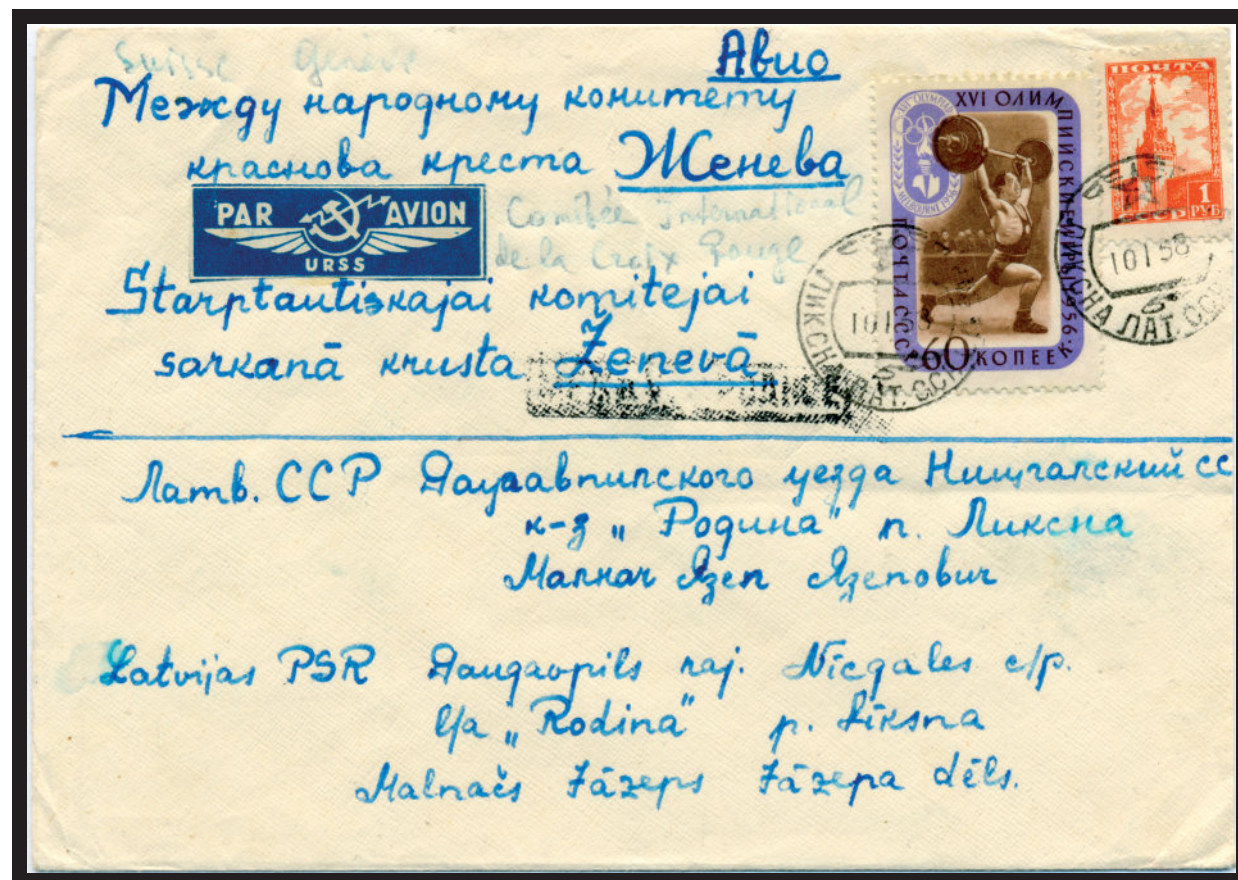 Suisse Genève
Авио
Между народному комитету
краснова креста Женева
PAR AVION
URSS
Comitée International
de la Croix Rouge
Starptautiskajai komitejai
sarkanā krusta Ženevā
XVI ОЛИМПИЙСКИЕ ИГРЫ 1956
XVI OLYMPIAD
MELBOURNE 1956
ПОЧТА СССР
60 КОПЕЕК
ПОЧТА
СССР
1
РУБ
10 1 58
ЛИКСНА ЛАТ. ССР
б
10 1 58
ЛИКСНА ЛАТ. ССР
б
Латв. ССР Даугавпилского уезда Ницгалский сс
к-з „Родина" п. Ликсна
Малнач Язеп Язепович
Latvijas PSR Daugavpils raj. Nīcgales c/p.
l/a „Rodina" p. Līksna
Malnačs Jāzeps Jāzepa dēls.